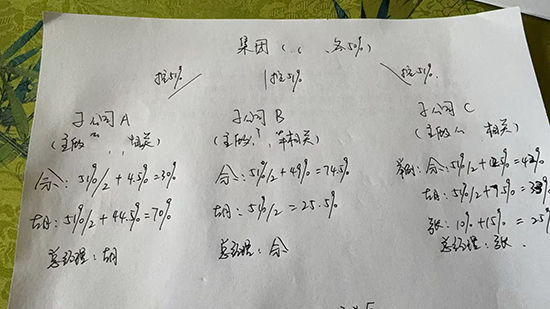 集团( 各50%)
控51% 控51% 控51%
子公司A 子公司B 子公司C
(主的 相关) (主的 等相关) (主的 相关)
余: 51%/2 + 4.5% = 30% 余: 51%/2 + 49% = 74.5% 余: 51%/2 +
胡: 51%/2 + 44.5% = 70% 胡: 51%/2 = 25.5% 胡: 51%/2 +
张: 10% + 15% = 25%
总经理: 胡 总经理: 余 总经理: 张